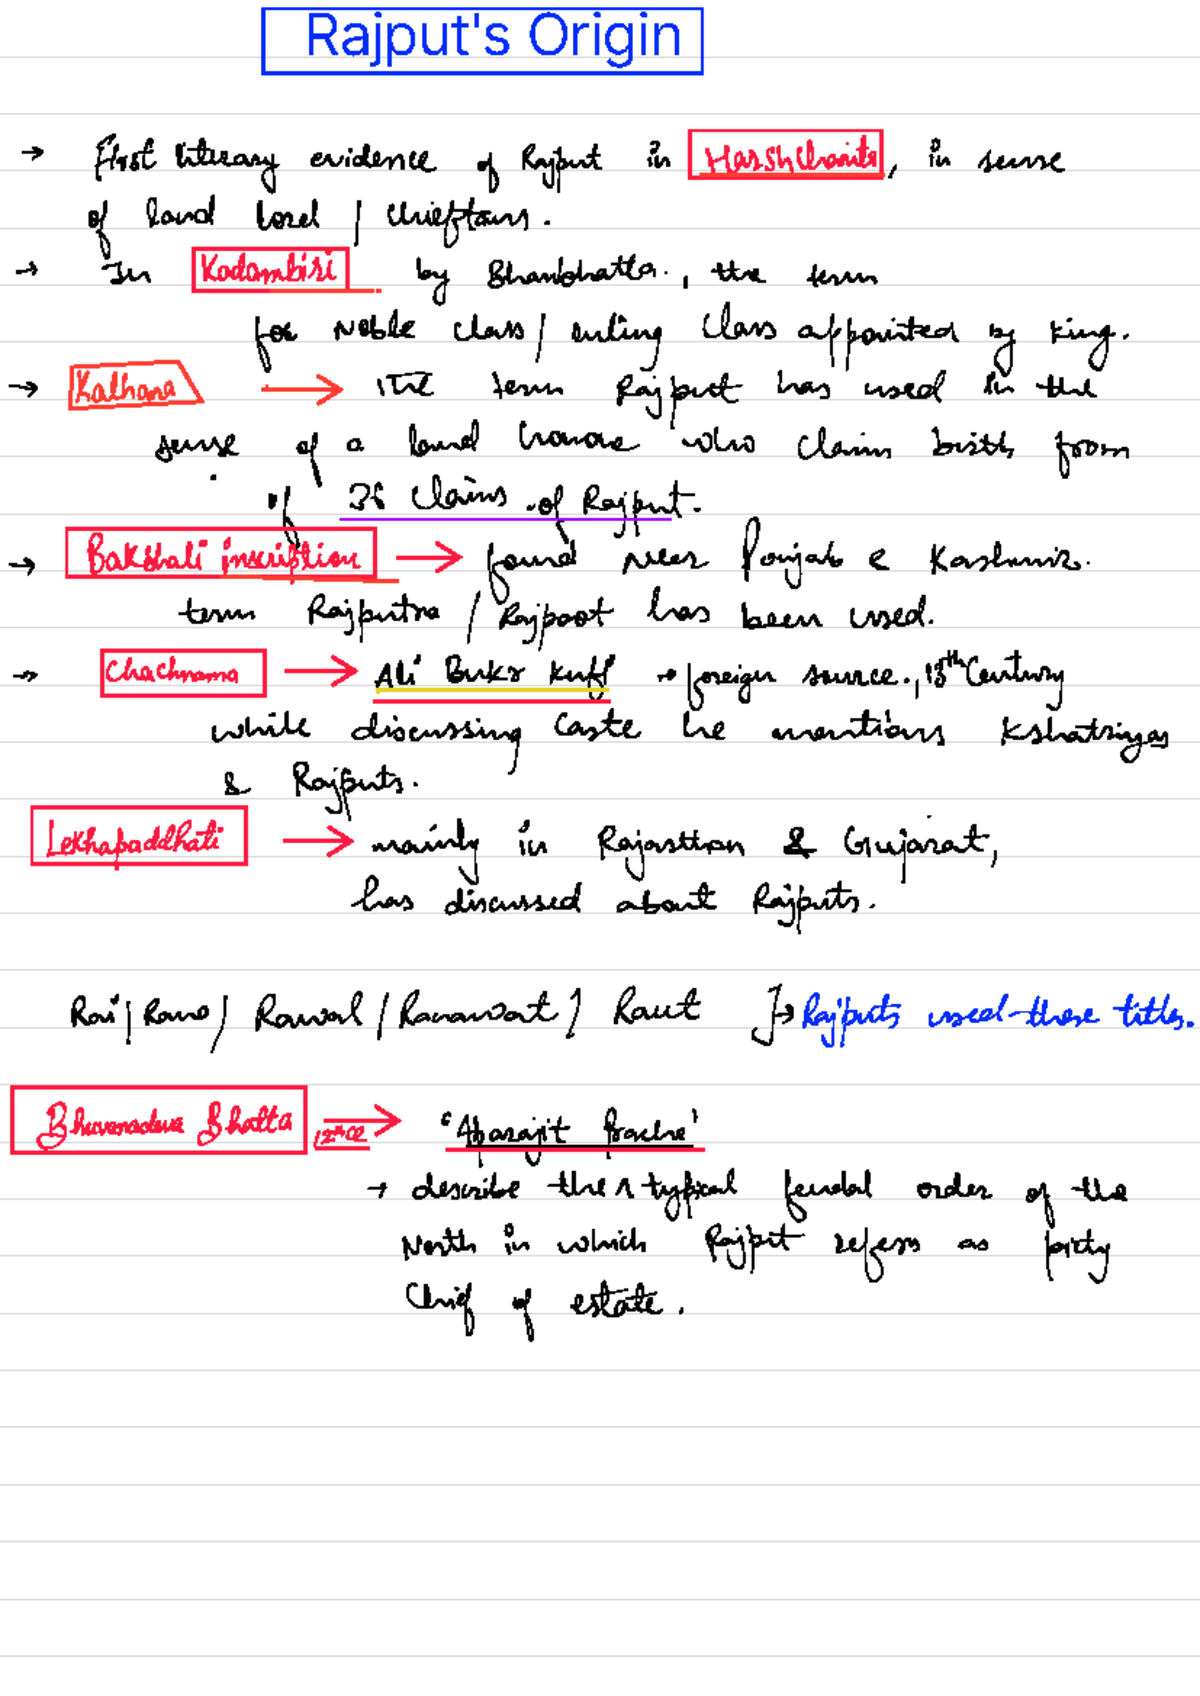 Rajput's Origin
→ First literary evidence of Rajput in Harshcharita, in sense
of land lord / chieftans.
→ In Kadambiri by Bhanbhatta, the term
for Noble class / ruling class appointed by king.
→ Kalhana → The term Rajput has used in the
sense of a land who claim birth from
of 36 claims of Rajput.
→ Bakshali inscription → found near Punjab & Kashmir.
term Rajputra / Rajpoot has been used.
→ Chachnama → Ali Bukr Kuffi → foreign source, 13th Century
while discussing caste he mentions Kshatriyas
& Rajputs.
Lekhapaddhati → mainly in Rajasthan & Gujarat,
has discussed about Rajputs.
Rai / Rana / Rawal / Ranawat / Raut ]→ Rajputs used these titles.
Bhuvanadeva Bhatta 12th CE → 'Aparajit Prache'
→ describe the typical feudal order of the
North in which Rajput refers as
Chief of estate.